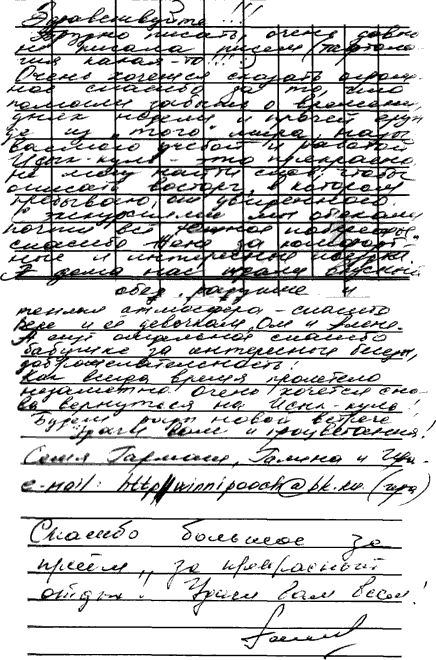 Здравствуйте!!!
Трудно писать, очень давно
не писала писем (
какая-то!!!)
Очень хочется сказать огром-
ное спасибо за то, что
помогли забыть о времени,
днях недели и прочей ерун-
де из "того" мира, назы-
ваемого учебой и работой
Иссык-Куль - это прекрасно,
не могу найти слов, чтобы
описать восторг, в котором
пребываю, от увиденного.
С экскурсиями мы объехали
почти всё
спасибо за комфорт-
ные и интересные поездки.
А дома нас ждали вкусный
обед, радушие и
теплая атмосфера - спасибо
Вере и её девочкам, Оле и Элене.
И ещё отдельное спасибо
бабушке за интересные беседы,
доброжелательность!
Как всегда время пролетело
незаметно! Очень хочется сно-
ва вернуться на Иссык-Куль!
Будем рады новой встрече
Удачи Вам и процветания!
Семья Гарманя, Галина и
e-mail: http//winnipooch@bk.ru
Спасибо большое за
приём, за прекрасный
отдых. Удачи вам всем!